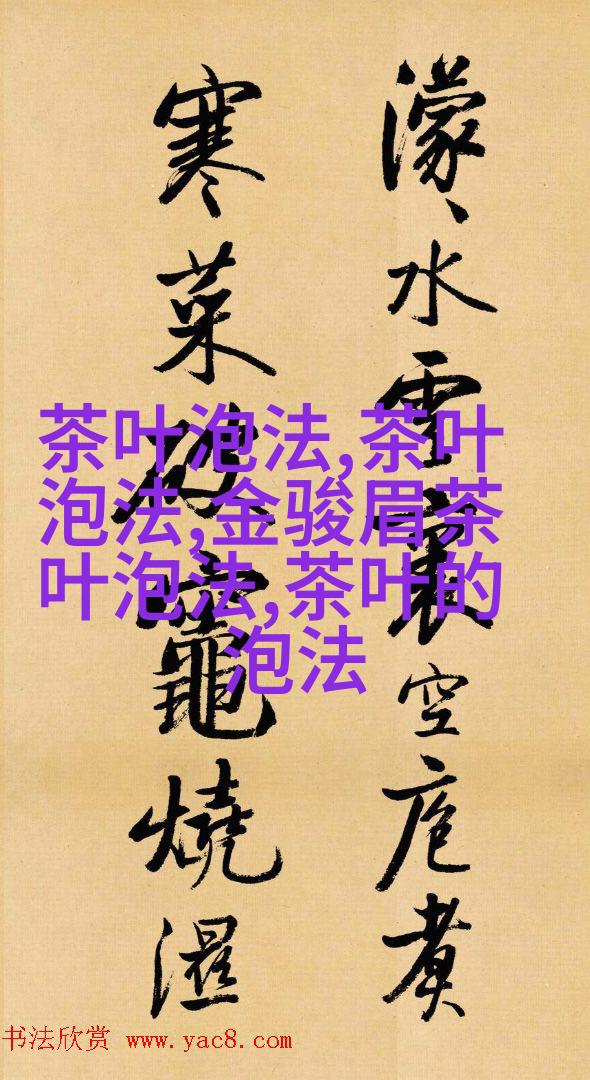 濛〻水雲裏空庖煮
寒菜破竈燒濕
茶叶泡法,茶叶
泡法,金骏眉茶
叶泡法,茶叶的
泡法
书法欣赏 www.yac8.com